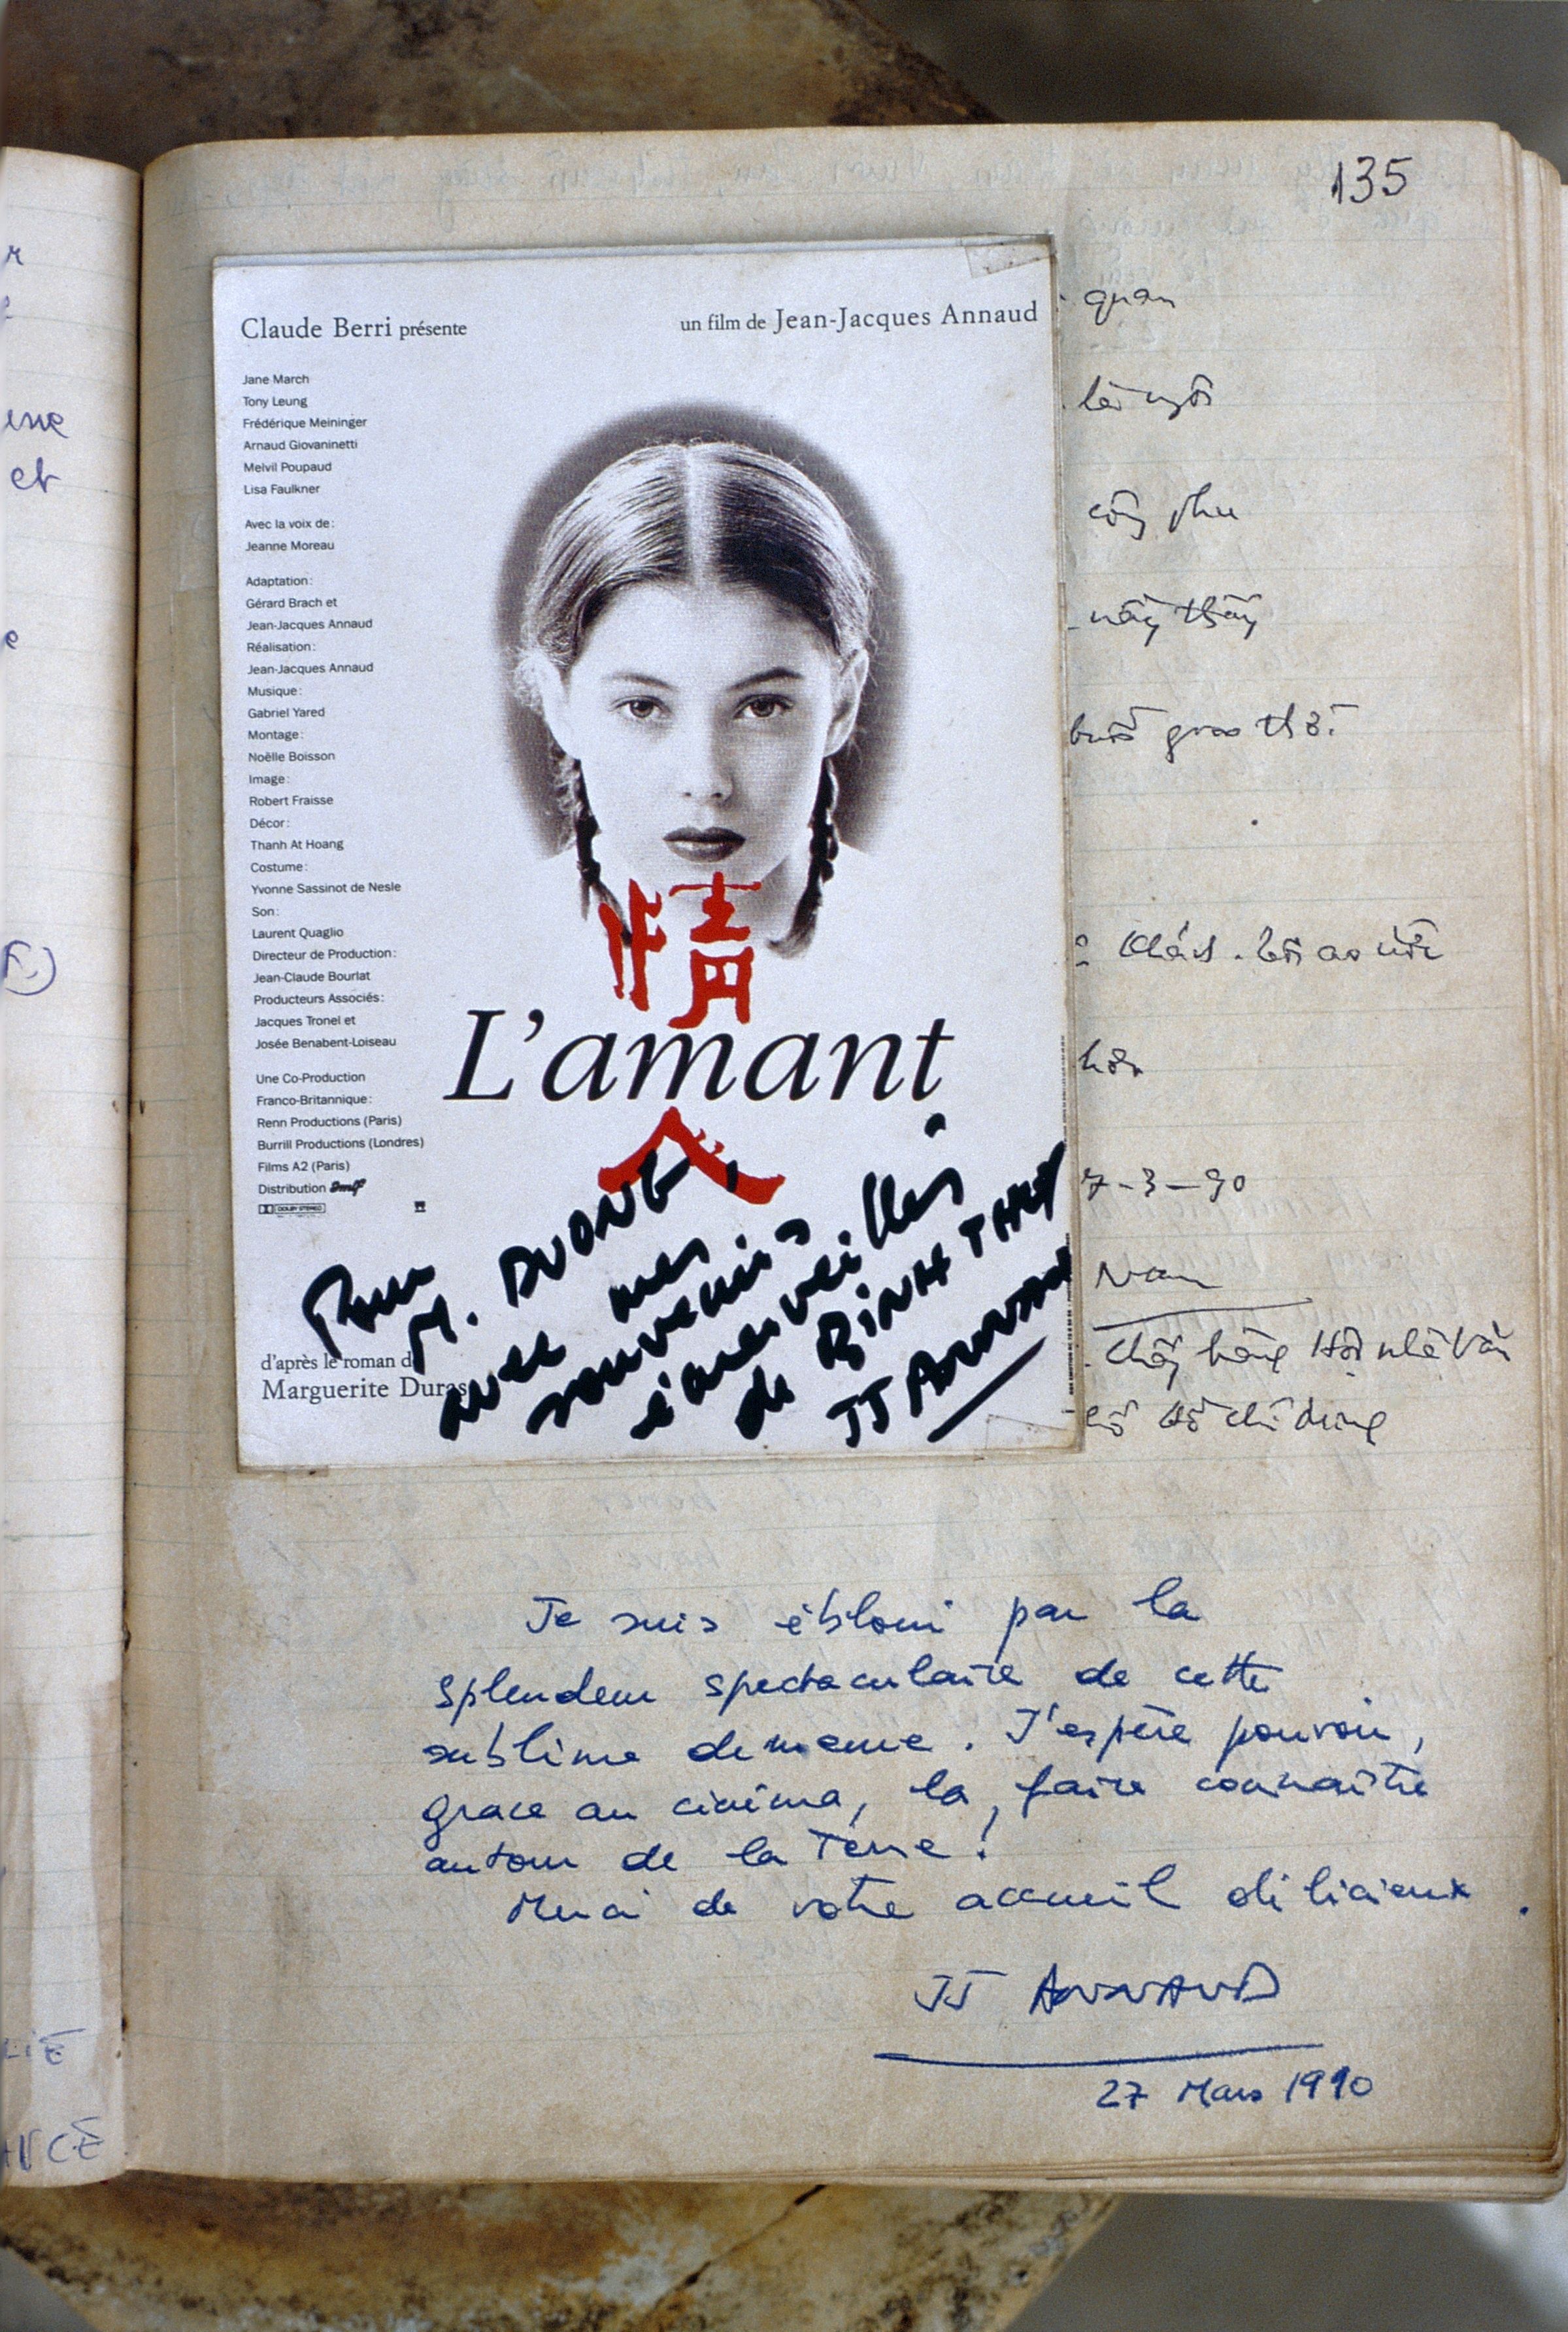 135
Claude Berri présente
un film de Jean-Jacques Annaud
Jane March
Tony Leung
Frédérique Meininger
Arnaud Giovaninetti
Melvil Poupaud
Lisa Faulkner
Avec la voix de:
Jeanne Moreau
Adaptation:
Gérard Brach et
Jean-Jacques Annaud
Réalisation:
Jean-Jacques Annaud
Musique:
Gabriel Yared
Montage:
Noëlle Boisson
Image:
Robert Fraisse
Décor:
Thanh At Hoang
Costume:
Yvonne Sassinot de Nesle
Son:
Laurent Quaglio
Directeur de Production:
Jean-Claude Bourlat
Producteurs Associés:
Jacques Tronel et
Josée Benabent-Loiseau
Une Co-Production
Franco-Britannique:
Renn Productions (Paris)
Burrill Productions (Londres)
Films A2 (Paris)
Distribution
DOLBY STEREO
情
L'amant
人
Pour
M. DUONG,
avec mes
souvenirs
émerveillés
de BINH THUY
JJ ANNAUD
d'après le roman d
Marguerite Duras
quan
công phu
7-3-90
Nam
Je suis ébloui par la
splendeur spectaculaire de cette
sublime demeure. J'espère pouvoir,
grace au cinéma, la faire connaître
autour de la Terre!
Merci de votre accueil délicieux.
JJ ANNAUD
27 Mars 1990
et